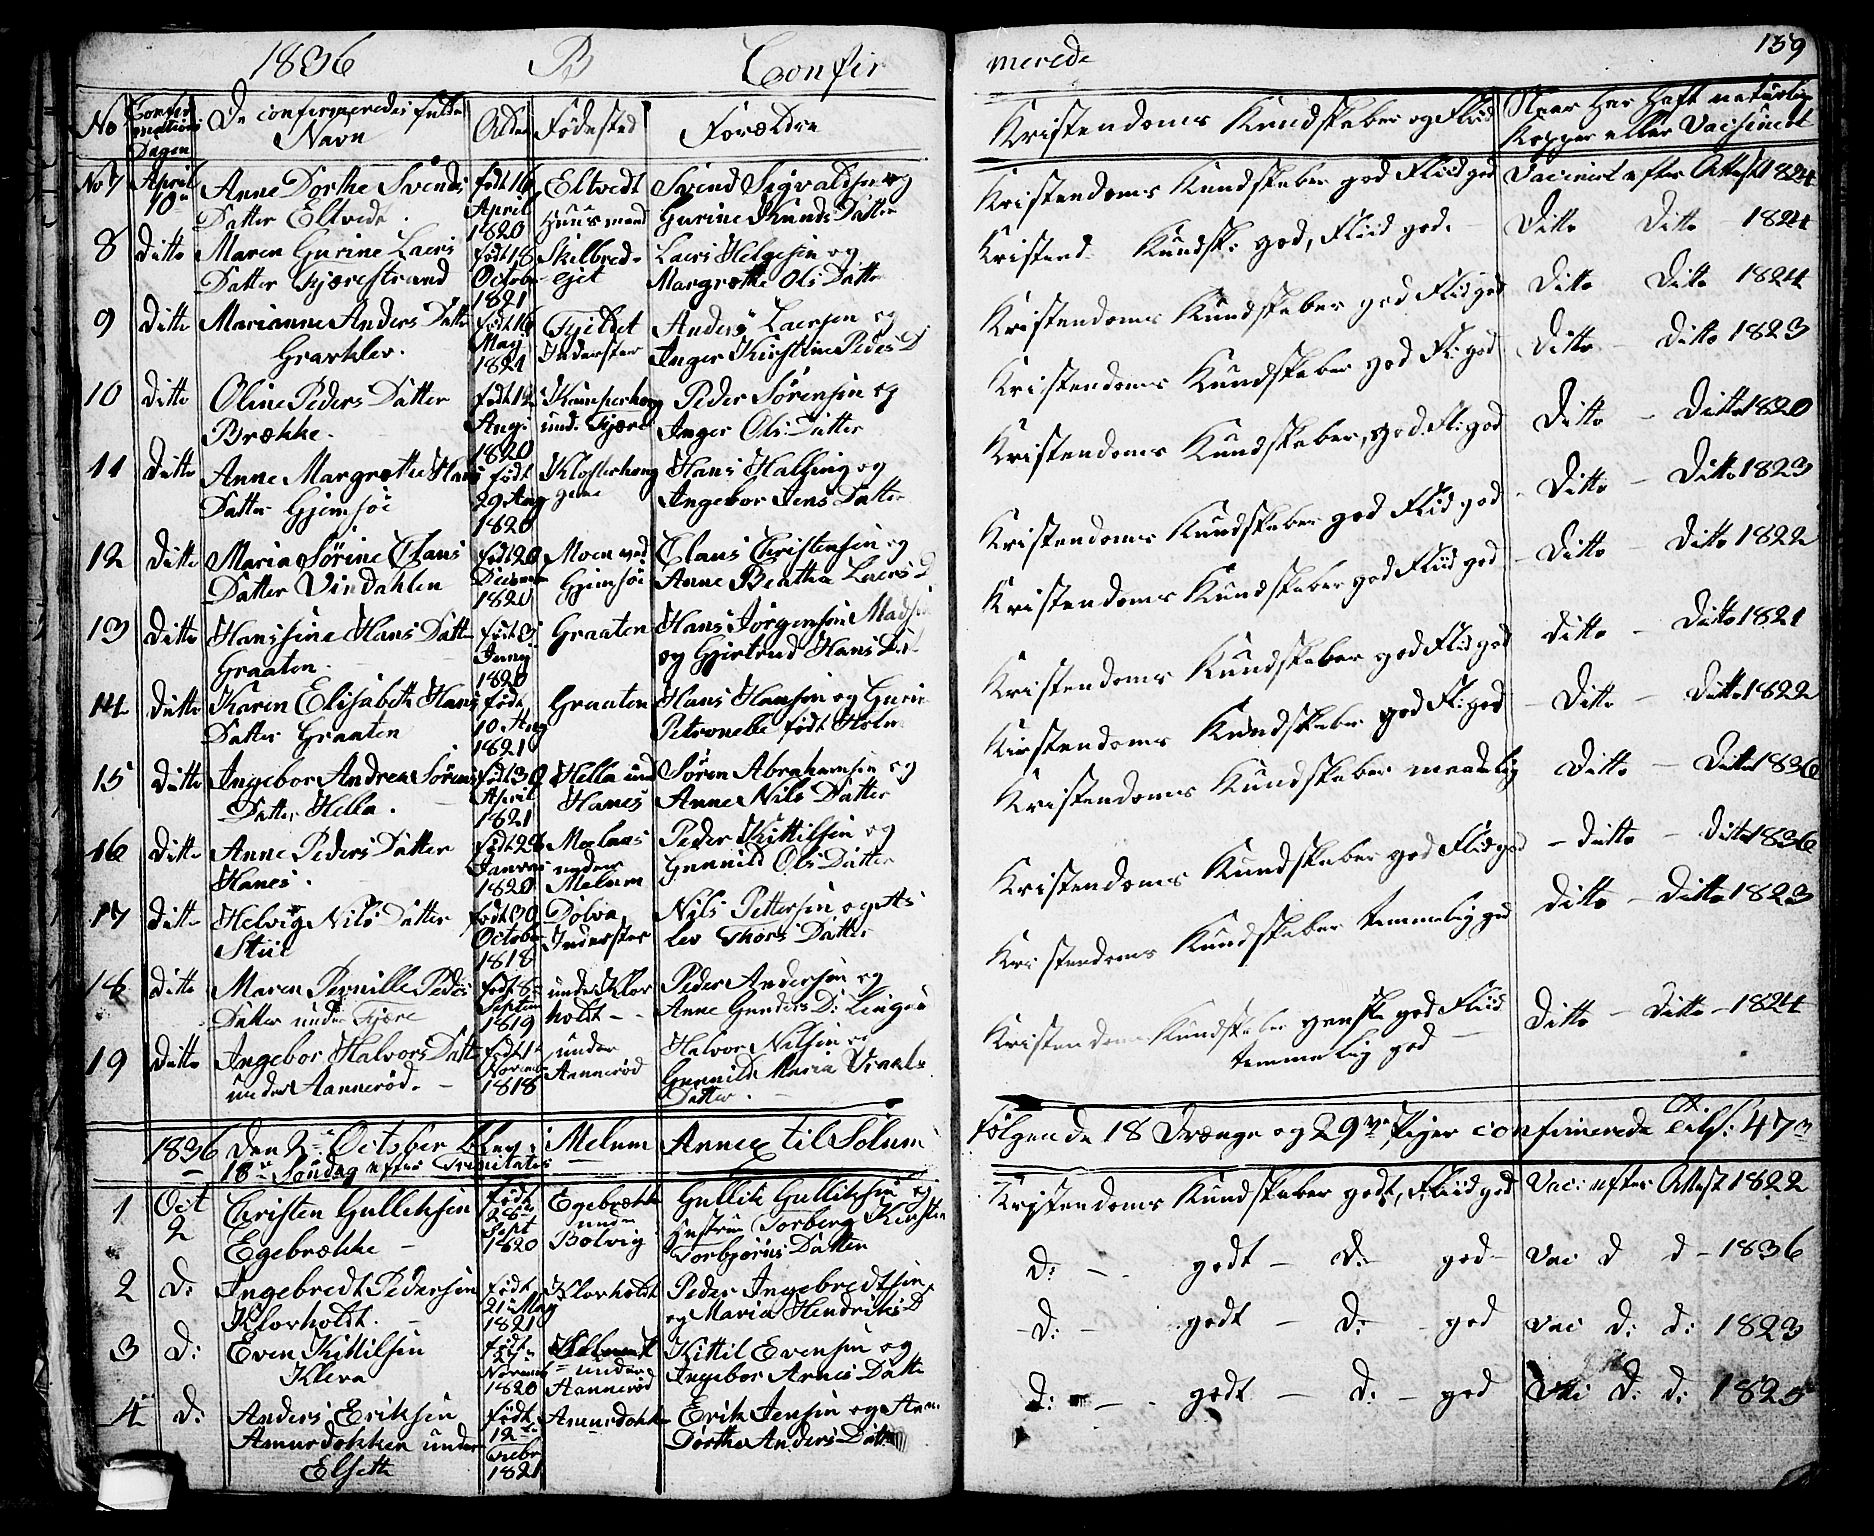 1836 B Confir merede 159
No Confirmations Dagen De confirmeredes fulde Navn Alder Fødested Forældre Kristendoms Kundskaber og Fliid Naar Har Haft naturlige Kopper eller Vaccineret
No 7 April 10de Anne Dorthe Svends Datter Eltvedt. født 16 April 1820 Eltvedt Huusmand Svend Sigvaldsen og Gurine Knuds Datter Kristendoms Kundskaber god Fliid god Vacineret efter Attest 1824
8 Ditto Maren Gurine Laers Datter Kjærestrand født 18 October 1821 Skilbredsejet Laers Helgesen og Margrethe Ols Datter Kristend. Kundsk: god, Fliid god. Ditto Ditto 1824
9 Ditto Marianne Anders Datter Gravklev. født 16 May 1821 Inderster Anders Laersen og Inger Kirstine Peders D Kristendoms Kundskaber god Fliid god Ditto Ditto 1824
10 Ditto Oline Peders Datter Brække. født 12 Aug: 1820 Kamperhoug und. Fjære Peder Sørensen og Inger Ols Datter Kristendoms Kundskaber god Fl: god Ditto Ditto 1823
11 Ditto Anne Margrethe Hans Datter Gjemsøe født 29 Aug 1820 Klosterhougene Hans Halling og Ingebor Jens Datter Kristendoms Kundskaber, god. Fl: god Ditto Ditto 1820
12 Ditto Maria Sørine Claus Datter Vindahlen født 20 Decem 1820 Moen ved Gjemsøe Claus Christensen og Anne Beatha Laers D Kristendoms Kundskaber god Fliid god Ditto Ditto 1823
13 Ditto Hanssine Hans Datter Graaten. født 3 Juny 1820 Graaten Hans Jørgensen Madsen og Gjertrud Hans Dat Kristendoms Kundskaber god Fliid god Ditto Ditto 1822
14 Ditto Karen Elisabeth Hans Datter Graaten født 10 Aug 1821 Graaten Hans Hansen og Gurin Petronelle født Holm Kristendoms Kundskaber god Fliid god Ditto Ditto 1821
15 Ditto Ingebor Andrea Sørens Datter Hella. født 30 April 1821 Hella und Hanes Søren Abrahamsen og Anne Nils Datter Kirstendoms Kundskaber god Fl: god Ditto Ditto 1822
16 Ditto Anne Peders Datter Hanes. født 29 Januar 1820 under Melum Peder Kittilsen og Gunnild Ols Datter Kristendoms Kundskaber maadelig Ditto Ditto 1836
17 Ditto Helvig Nils Datter Stiil født 30 October 1818 Dølva Inderster Nils Pettersen og As lev Thors Datter Kristendoms Kundskaber god Fliid god Ditto Ditto 1836
18 Ditto Maren Pernille Peders Datter under Fjære født 8de Septem 1819 under Klovholdt Peder Andersen og Anne Gunders D: Kristendoms Kundskaber temmelig god Ditto Ditto 1823
19 Ditto Ingebor Halvors Datt under Aannerød. født 1te Novem 1818 under Aannerød Halvor Nilsen og Gunnild Maria Datter. Kristendoms Kundskaber ganske god Fliid temmelig god Ditto Ditto 1824
1836 den 2de October blev i Melum Annex til Solum følgende 18 Drænge og 29 ve Piger confirmerede tils: 47
18de Søndag efter Trinitatis
1 Oct 2 Christen Gulleksen Egebrække født 28de Sept 1820 Egebrække under Bolvig Gullik Gulliksen og Hustrue Torberg Kirstin Torbjørns Datter Kristendoms Kundskaber godt, Fliid god Vac: efter Attest 1822
2 D: Ingebredt Pedersen Klovholdt. født 21 May 1821 Klovholdt Peder Ingebredtsen og Maria Hendriks D D: godt D: god Vac d d 1836
3 D: Even Kittilsen Kleva født 27 Novemb 1820 under Aannerød Kittil Evensen og Ingebor Arnes Datte D: godt D: god Vac D: d: 1823
4 D: Anders Eriksen Amurdokken under Elseth født 12te Febr 1821 Amurdokken Erik Jensen og Anne Dorthe Anders Datter D: godt D: god Vac D: d: 1825